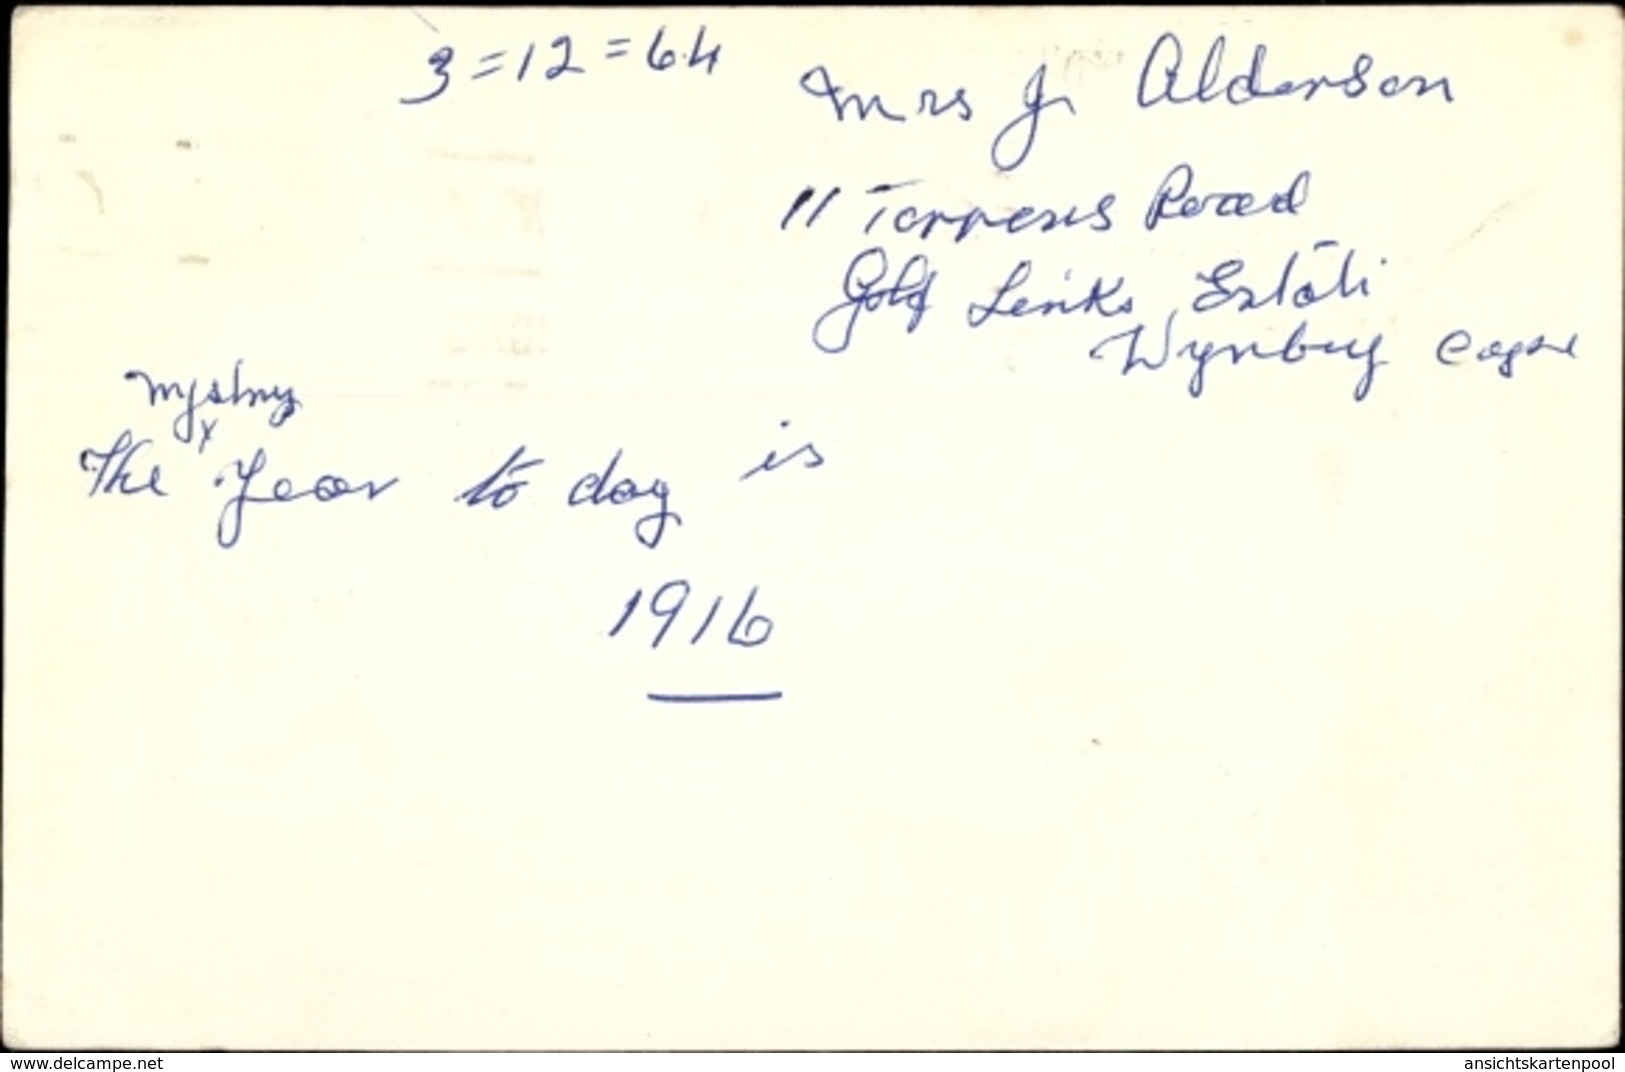 3=12=64
Mrs J. Alderson
11 Torrens Road
Golf Links Estate
Wynberg Cape
Mystery
x
The Year to day is
1916
www.delcampe.net
ansichtskartenpool